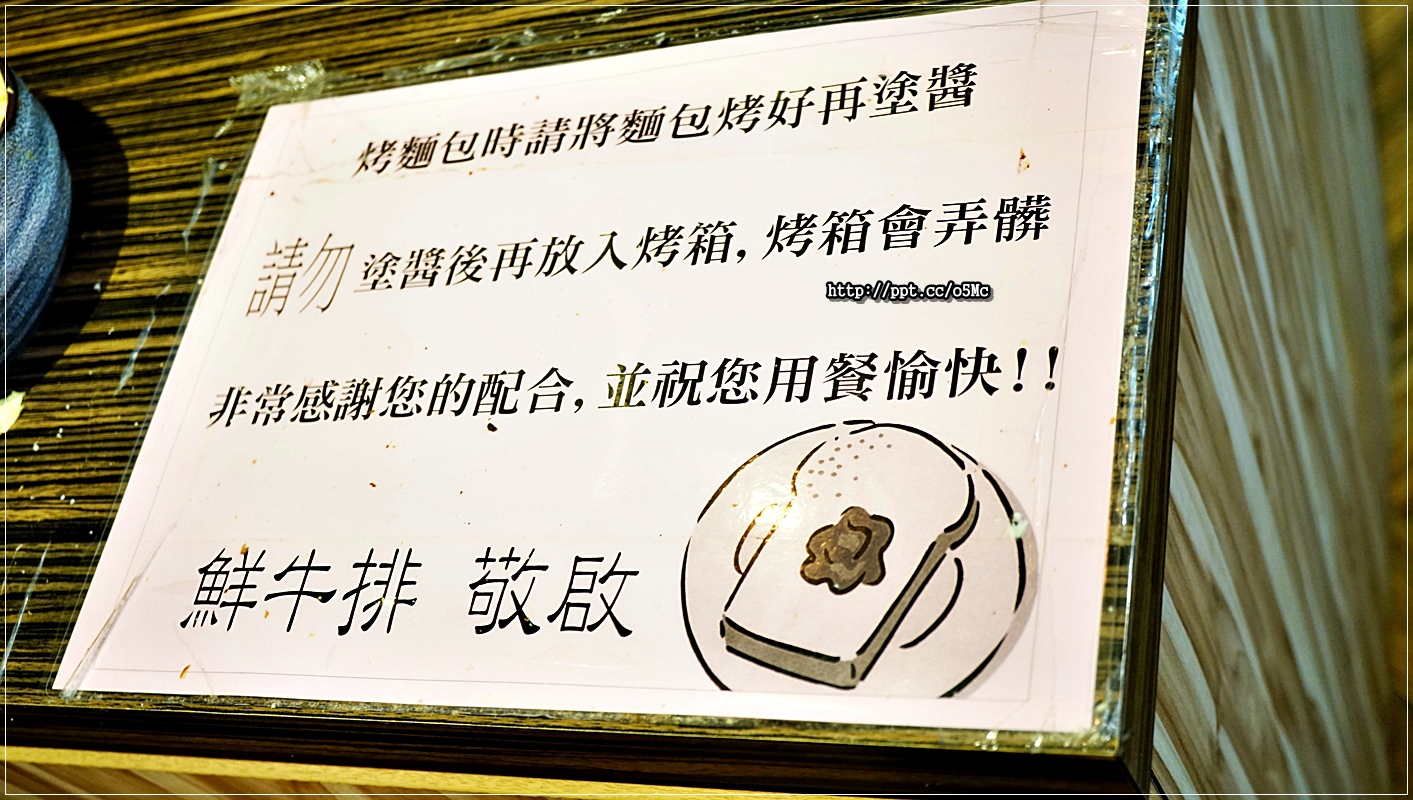 烤麵包時請將麵包烤好再塗醬
請勿 塗醬後再放入烤箱,烤箱會弄髒
http://ppt.cc/o5Mc
非常感謝您的配合,並祝您用餐愉快!!
鮮牛排 敬啟